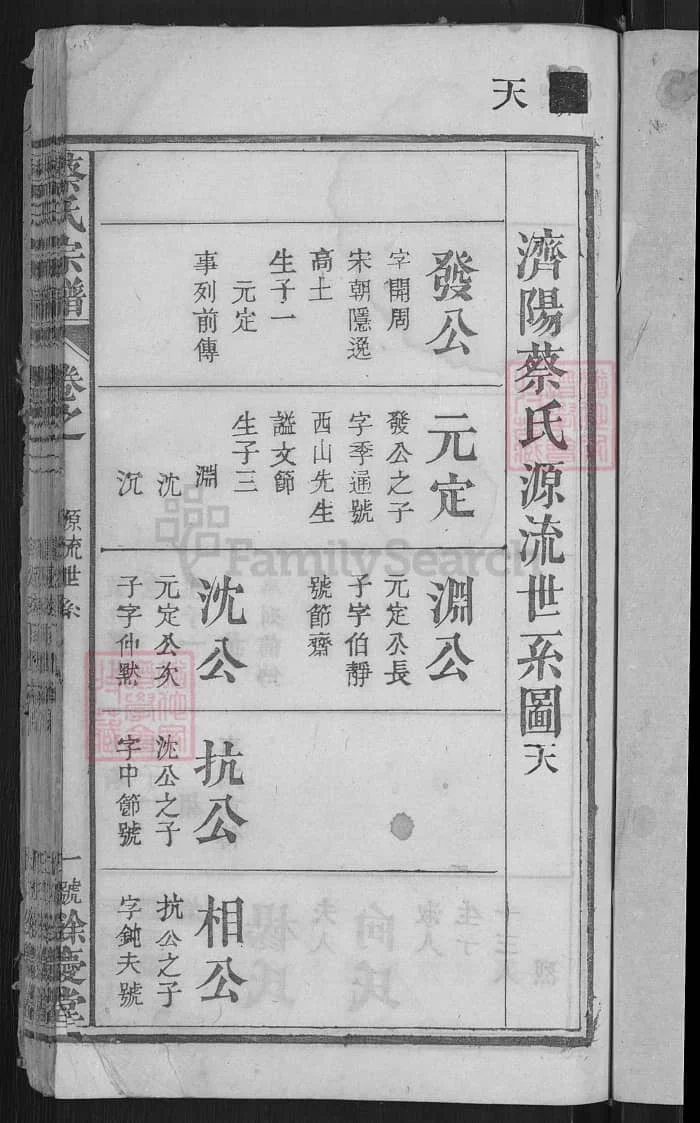 天
濟陽蔡氏源流世系圖天
發公
字開周
宋朝隱逸
高士
生子一
元定
事列前傳
元定
發公之子
字季通號
西山先生
謚文節
生子三
淵
沈
沉
淵公
元定公長
子字伯靜
號節齋
沈公
元定公次
子字仲默
抗公
沈公之子
字中節號
相公
抗公之子
字鈍夫號
蔡氏宗譜
卷之一
源流世系
一號餘慶堂
FamilySearch